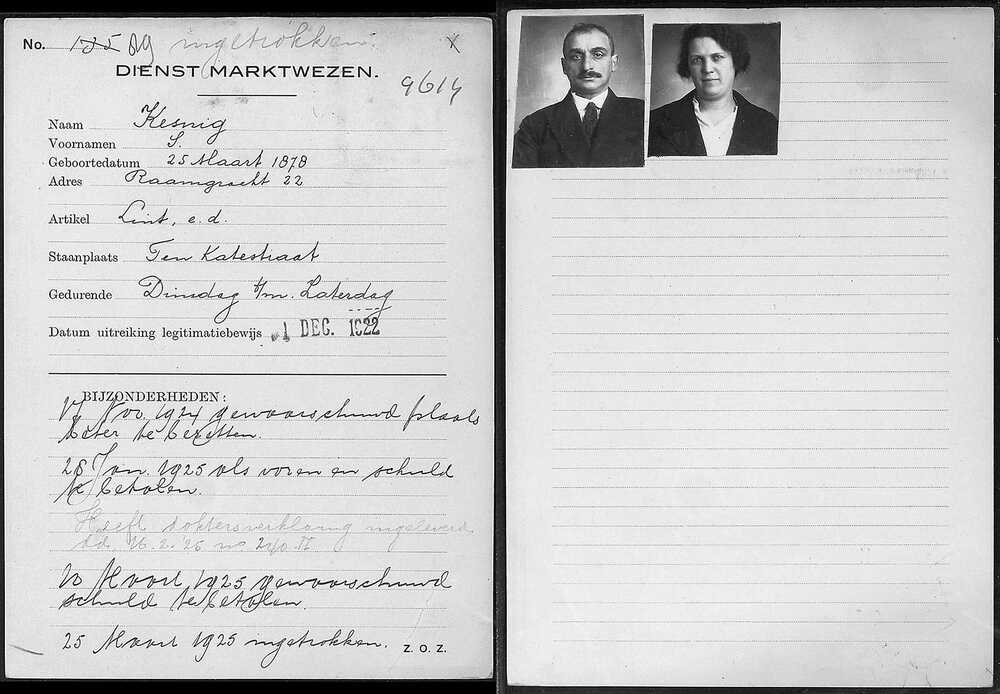 No. 135 89 ingetrokken. X
DIENST MARKTWEZEN.
9614
Naam Kesnig
Voornamen S.
Geboortedatum 25 Maart 1878
Adres Raamgracht 22
Artikel Lint, e.d.
Staanplaats Ten Katestraat
Gedurende Dinsdag t/m. Zaterdag
Datum uitreiking legitimatiebewijs 1 DEC. 1922
BIJZONDERHEDEN:
17 Nov. 1924 gewaarschuwd plaats
beter te bezetten.
28 Jan. 1925 als voren en schuld
te betalen.
Heeft doktersverklaring ingeleverd
dd. 16.2.'25 no 240 II
10 Maart 1925 gewaarschuwd
schuld te betalen.
25 Maart 1925 ingetrokken.
Z. O. Z.